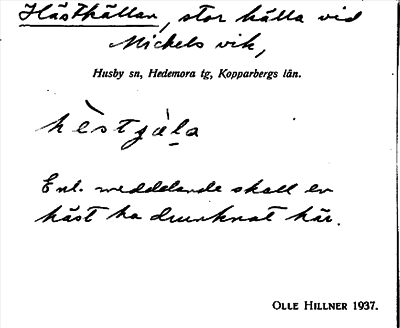 Hästkällan, stor källa vid
Mickels vik,
Husby sn, Hedemora tg, Kopparbergs län.
hèstjà̱la
Enl. meddelande skall en
häst ha drunknat här.
OLLE HILLNER 1937.